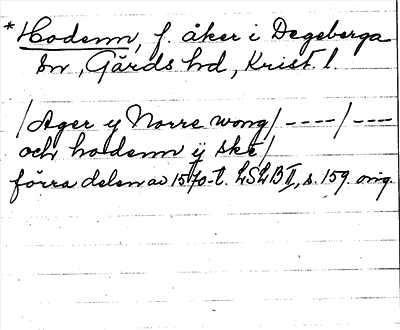 *Hodenn, f. åker i Degeberga
sn, Gärds hd, Krist. l.
/Ager y Norre wong/----/---
och hodenn ÿ ske/
förra delen av 1570-t. LSLB II, s. 159. orig.